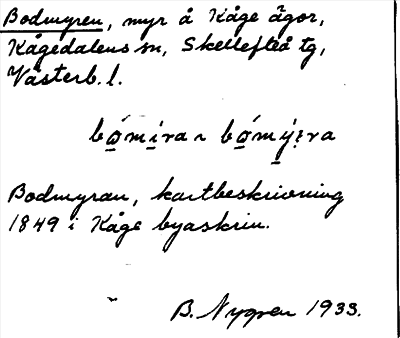 Bodmyren, myr å Kåge ägor,
Kågedalens sn, Skellefteå tg,
Västerb. l.
bó̱mi̱ra ~ bó̱mý̱ra
Bodmyran, kartbeskrivning
1849 i Kåge byaskrin.
B. Nygren 1933.